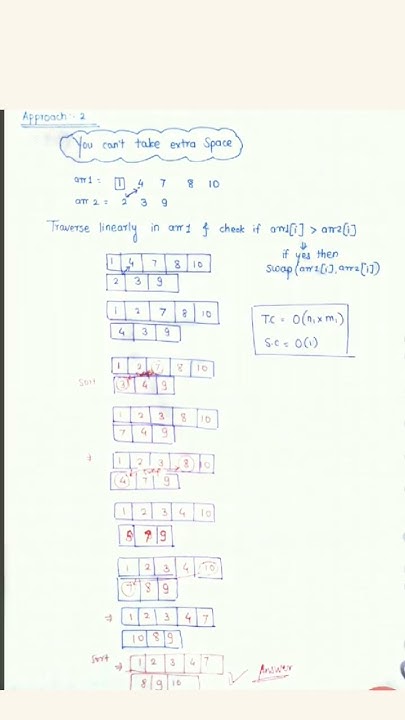 Approach :- 2
You can't take extra Space
arr1 = 1 4 7 8 10
arr 2 = 2 3 9
Traverse linearly in arr 1 & check if arr1[i] > arr2[i]
⇓
if yes then
swap(arr1[i], arr2[i])
1 4 7 8 10
2 3 9
1 2 7 8 10
4 3 9
T.C = O(n, x m,)
S.C = O(1)
1 2 7 8 10
Sort 3 4 9
1 2 3 8 10
7 4 9
⇒ 1 2 3 8 10
4 7 9
1 2 3 4 10
8 7 9
1 2 3 4 10
7 8 9
⇒ 1 2 3 4 7
10 8 9
Sort ⇒ 1 2 3 4 7
8 9 10
Answer